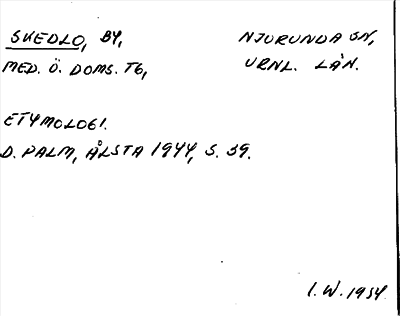 SKEDLO, BY, NJURUNDA SN,
MED. Ö. DOMS. TG, VRNL. LÄN.
ETYMOLOGI.
D. PALM, ÅLSTA 1944, S. 39.
I. W. 1954